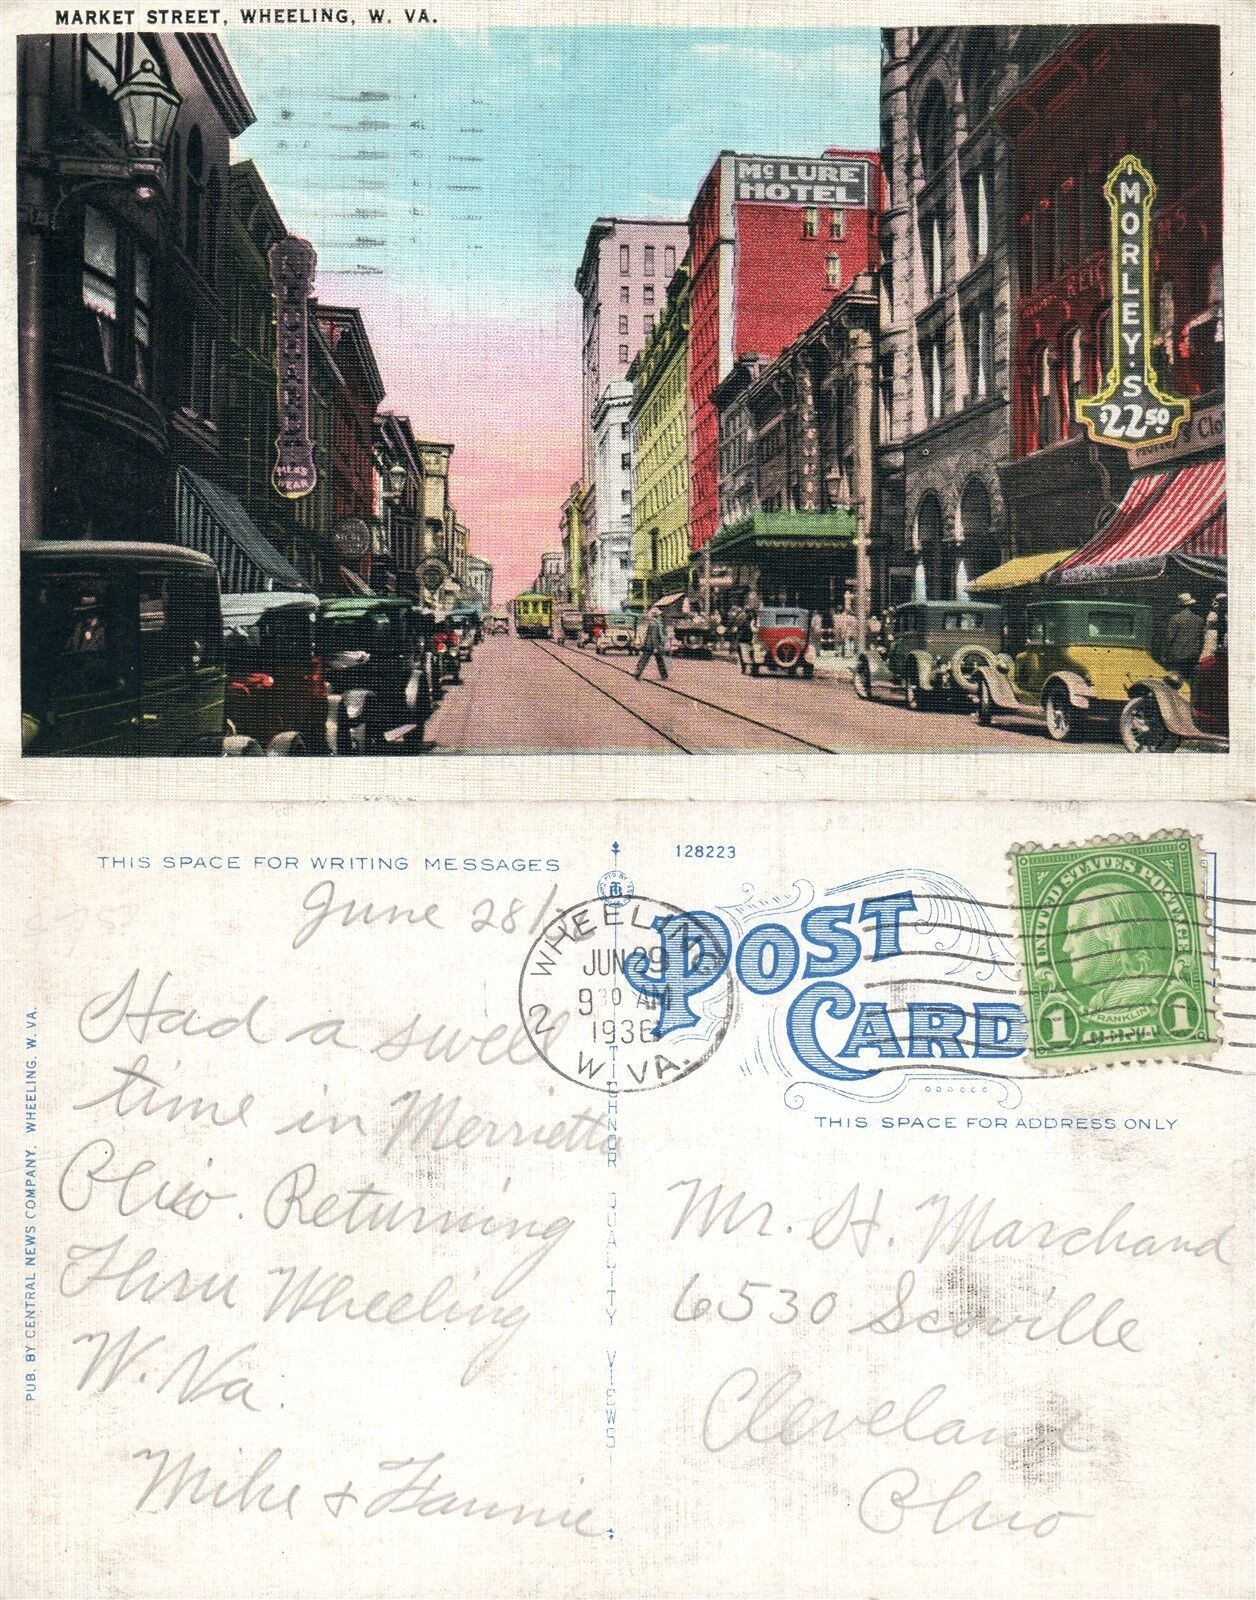 MARKET STREET, WHEELING, W. VA.
McLURE
HOTEL
MORLEY'S
$22.50
MEN'S
WEAR
THIS SPACE FOR WRITING MESSAGES
128223
POST
CARD
UNITED STATES POSTAGE
FRANKLIN
1 1
WHEELING
JUN 29
9 30 AM
1936
2 W. VA.
THIS SPACE FOR ADDRESS ONLY
PUB. BY CENTRAL NEWS COMPANY, WHEELING, W. VA.
TICHNOR QUALITY VIEWS
June 28/
Had a swell
time in Merrietta
Ohio. Returning
Thru Wheeling
W. Va.
Mike + Fannie
Mr. H. Marchand
6530 Scoville
Cleveland
Ohio